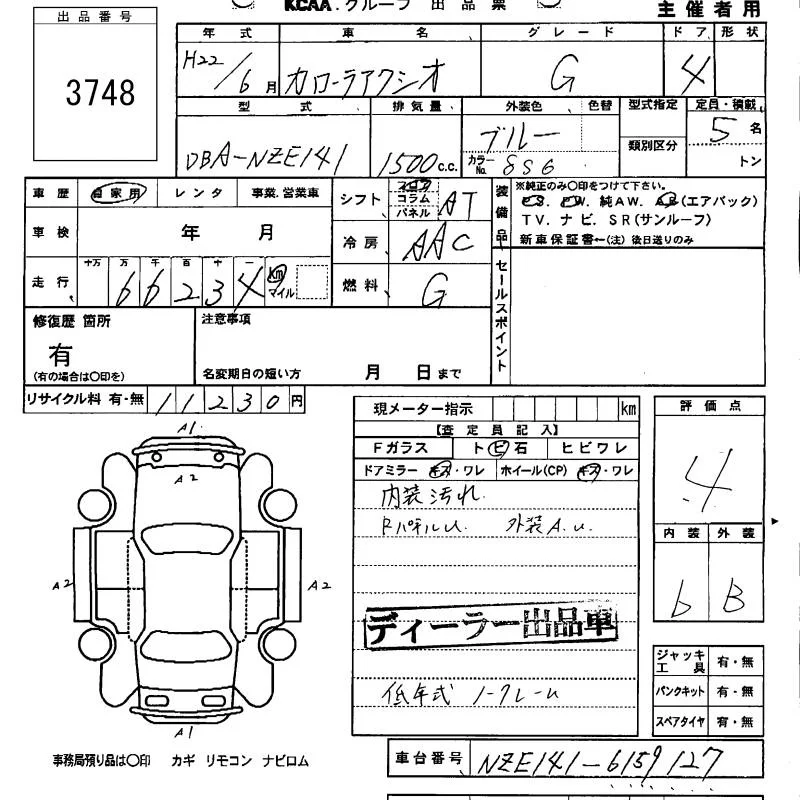 KCAA.グループ 出品票
主催者用
出品番号
3748
年式 車名 グレード ドア 形状
H22/6月 カローラアクシオ G 4
型式 排気量 外装色 色替 型式指定 定員・積載
類別区分
DBA-NZE141 1500c.c. ブルー カラーNo. 8S6 5名
トン
車歴 自家用 レンタ 事業.営業車
車検 年 月
走行 十万 万 千 百 十 一
66234 km マイル
シフト フロア コラム パネル AT
冷房 AAC
燃料 G
装備品
※純正のみ○印をつけて下さい。
P.S. P.W. 純AW. A.B(エアバック)
TV. ナビ. SR(サンルーフ)
新車保証書←(注)後日送りのみ
セールスポイント
修復歴 箇所
有
(有の場合は○印を)
注意事項
名変期日の短い方 月 日まで
リサイクル料 有・無 11230円
現メーター指示 km
【査定員記入】
Fガラス ト ビ 石 ヒビワレ
ドアミラー キズ・ワレ ホイール(CP) キズ・ワレ
内装汚れ.
RパネルU. 外装A.U.
ディーラー出品車
低年式 ノークレーム
評価点
4
内装 外装
b B
ジャッキ工具 有・無
パンクキット 有・無
スペアタイヤ 有・無
A1
A2
A2
A2
A1
事務局預り品は○印 カギ リモコン ナビロム
車台番号 NZE141-6159127